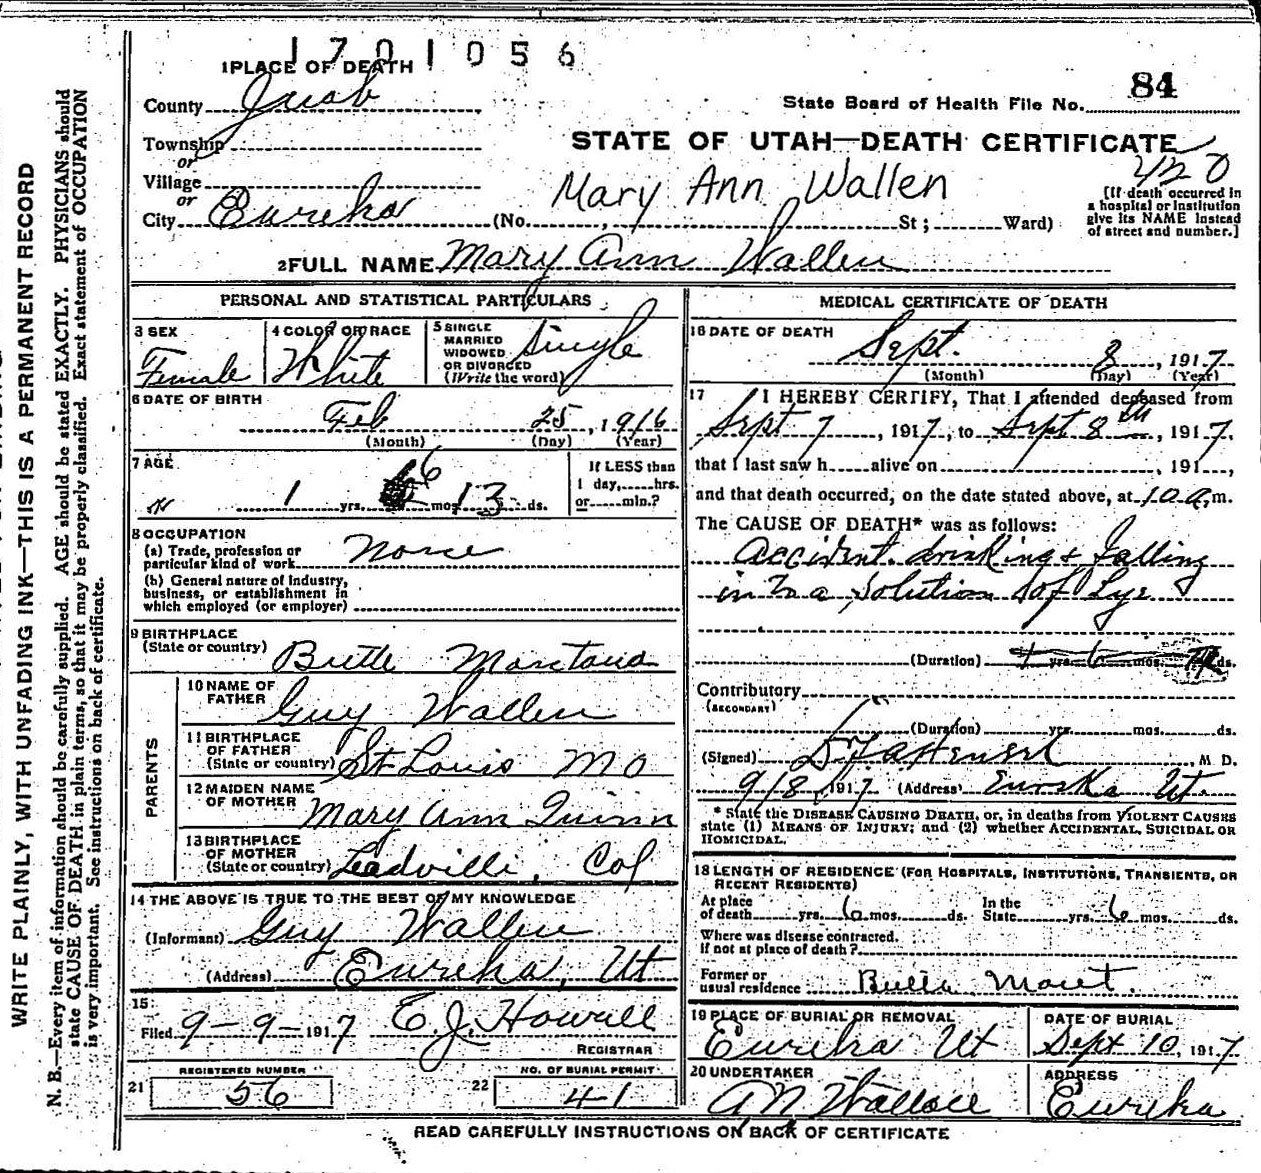 1701056
1 PLACE OF DEATH
County Juab
84
State Board of Health File No.
Township
or
STATE OF UTAH—DEATH CERTIFICATE
420
Village
or
Mary Ann Wallen
City Eureka (No. , St; Ward)
[If death occurred in
a hospital or institution
give its NAME instead
of street and number.]
2 FULL NAME Mary Ann Wallen
PERSONAL AND STATISTICAL PARTICULARS
3 SEX
Female
4 COLOR OR RACE
White
5 SINGLE
MARRIED
WIDOWED
OR DIVORCED
(Write the word)
Single
6 DATE OF BIRTH
Feb 25, 1916
(Month) (Day) (Year)
7 AGE
1 yrs. 6 mos. 13 ds.
If LESS than
1 day, hrs.
or min.?
8 OCCUPATION
(a) Trade, profession or
particular kind of work None
(b) General nature of industry,
business, or establishment in
which employed (or employer)
9 BIRTHPLACE
(State or country) Butte Montana
PARENTS
10 NAME OF
FATHER Guy Wallen
11 BIRTHPLACE
OF FATHER
(State or country) St Louis Mo
12 MAIDEN NAME
OF MOTHER Mary Ann Quinn
13 BIRTHPLACE
OF MOTHER
(State or country) Leadville, Col
14 THE ABOVE IS TRUE TO THE BEST OF MY KNOWLEDGE
(Informant) Guy Wallen
(Address) Eureka, Ut
15
Filed 9-9-1917 E.J. Howell
REGISTRAR
REGISTERED NUMBER
21 56
NO. OF BURIAL PERMIT
22 41
MEDICAL CERTIFICATE OF DEATH
16 DATE OF DEATH
Sept. 8, 1917
(Month) (Day) (Year)
17 I HEREBY CERTIFY, That I attended deceased from
Sept 7, 1917, to Sept 8th, 1917,
that I last saw h alive on , 191 ,
and that death occurred, on the date stated above, at 10 a.m.
The CAUSE OF DEATH* was as follows:
accident. drinking & falling
in to a solution of Lye
(Duration) 1 yrs. 6 mos. ds.
Contributory
(SECONDARY)
(Duration) yrs. mos. ds.
(Signed) M. D.
9/8, 1917 (Address) Eureka Ut.
* State the DISEASE CAUSING DEATH, or, in deaths from VIOLENT CAUSES
state (1) MEANS OF INJURY; and (2) whether ACCIDENTAL, SUICIDAL OR
HOMICIDAL.
18 LENGTH OF RESIDENCE (FOR HOSPITALS, INSTITUTIONS, TRANSIENTS, OR
RECENT RESIDENTS)
At place
of death yrs. 6 mos. ds.
In the
State yrs. 6 mos. ds.
Where was disease contracted.
if not at place of death?
Former or
usual residence Butte Mont.
19 PLACE OF BURIAL OR REMOVAL
Eureka Ut
DATE OF BURIAL
Sept 10, 1917
20 UNDERTAKER
A N Wallace
ADDRESS
Eureka
READ CAREFULLY INSTRUCTIONS ON BACK OF CERTIFICATE
WRITE PLAINLY, WITH UNFADING INK—THIS IS A PERMANENT RECORD
N. B.—Every item of information should be carefully supplied. AGE should be stated EXACTLY. PHYSICIANS should
state CAUSE OF DEATH in plain terms, so that it may be properly classified. Exact statement of OCCUPATION
is very important. See instructions on back of certificate.